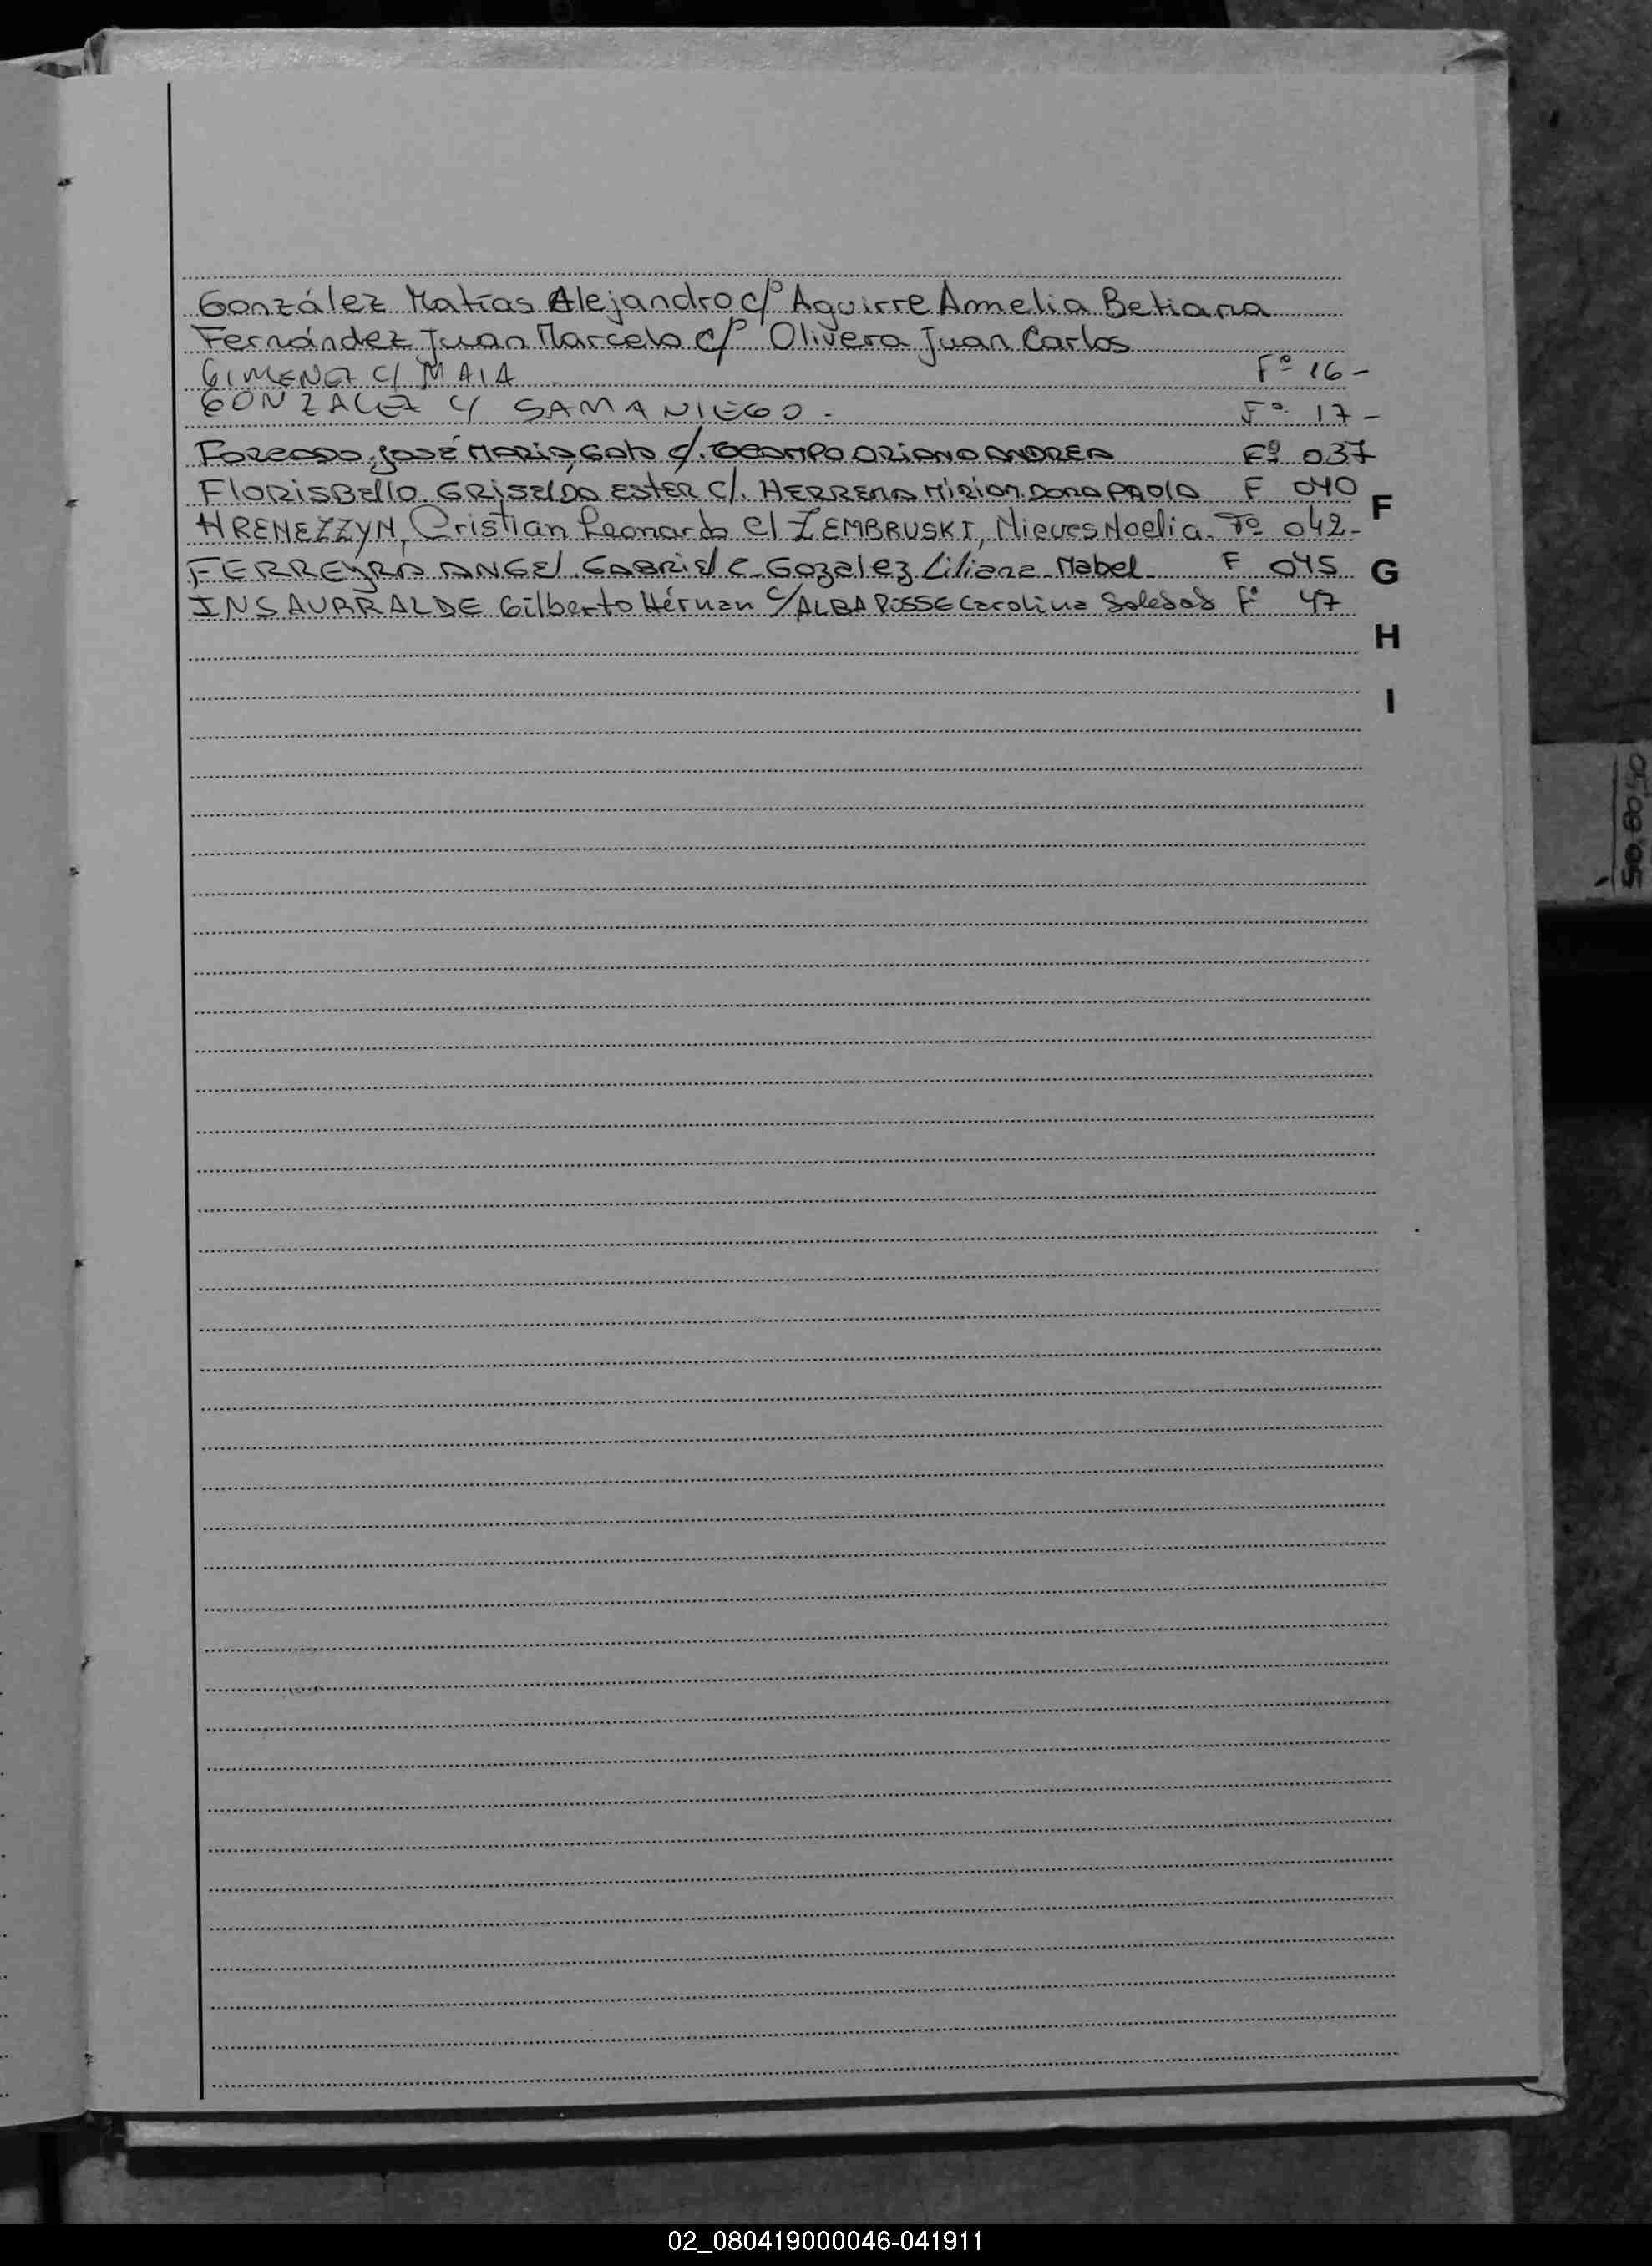 González Matías Alejandro c/p Aguirre Amelia Betiana
Fernández Juan Marcelo c/p Olivera Juan Carlos
GIMENEZ C/ MAIA Fº 16-
GONZALEZ C/ SAMANIEGO.- Fº 17-
José MARIA C/. OCAMPO ORIANA ANDREA Fº 037
FlORISBEllO GRISELDA ESTER C/. HERRERA MIRIAN DORA PAOlA F 040
HRENEZZYN, Cristian Leonardo C/ ZEMBRUSKI, Nieves Noelia. Fº 042-
FERREYRA ANGEl GABRIEl C. Gozalez Liliana Mabel F 045
INSAURRALDE Gilberto Hérnan C/ ALBA Carolina Soledad Fº 47
F
G
H
I
02_080419000046-041911